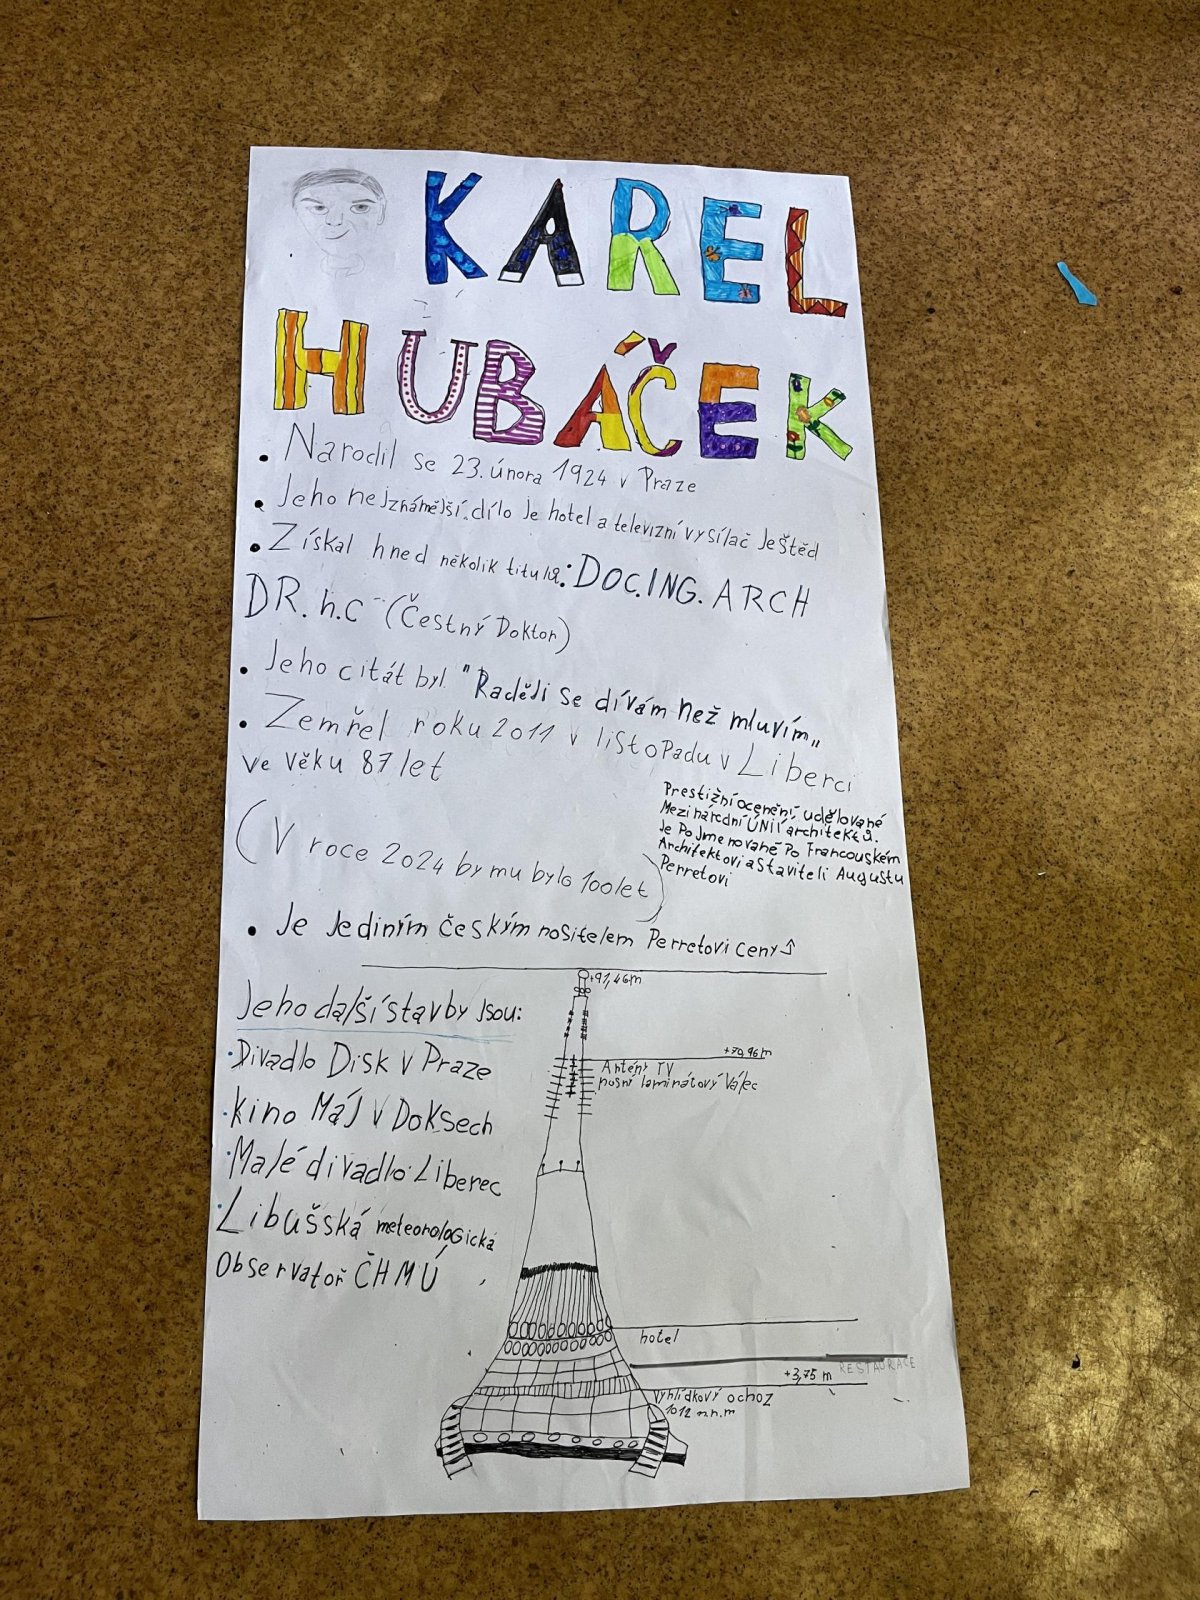 KAREL
HUBÁČEK
• Narodil se 23. února 1924 v Praze
• Jeho nejznámější dílo je hotel a televizní vysílač Ještěd
• Získal hned několik titulů: DOC.ING. ARCH
DR. h.c - (Čestný Doktor)
• Jeho citát byl "Raději se dívám než mluvím„
• Zemřel roku 2011 v listopadu v Liberci
ve věku 87 let
(V roce 2024 by mu bylo 100 let)
Prestižní ocenění, udělované
Mezinárodní ÚNIÍ architektů.
Je Pojmenované Po Francouském
Architektovi a Staviteli Augustu
Perretovi
• Je Jediným českým nositelem Perretovi ceny
Jeho další stavby jsou:
• Divadlo Disk v Praze
• kino Máj v Doksech
• Malé divadlo Liberec
• Libušská meteorologická
Observatoř ČHMÚ
+91,46m
+70,96m
Antény TV
nosní laminátový Válec
hotel
RESTAURACE
+3,75 m
Vyhlídkový ochoz
1012 m.n.m